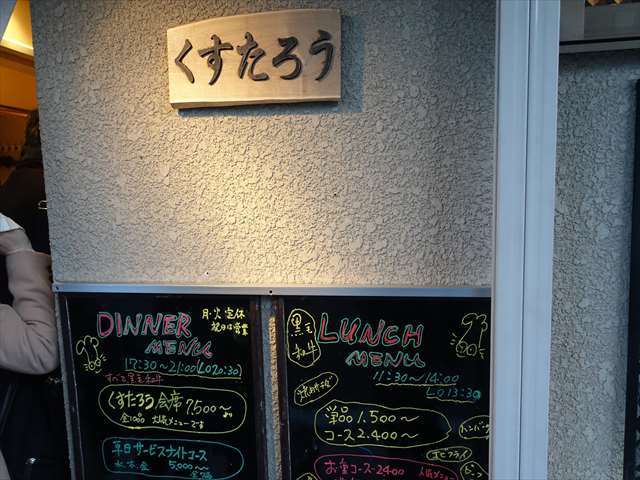 くすたろう
DINNER
MENU
月・火 定休
祝日は営業
17:30~21:00(LO20:30)
すべて黒毛和牛
くすたろう会席 7,500~
全10品 大人気メニューです
平日サービスナイトコース
水木金 5,000~
黒毛
和牛
LUNCH
MENU
11:30~14:00
LO13:30
単品 1.500~
コース 2.400~
ハンバーグ
エビフライ
お昼コース 2,400
人気メニュー